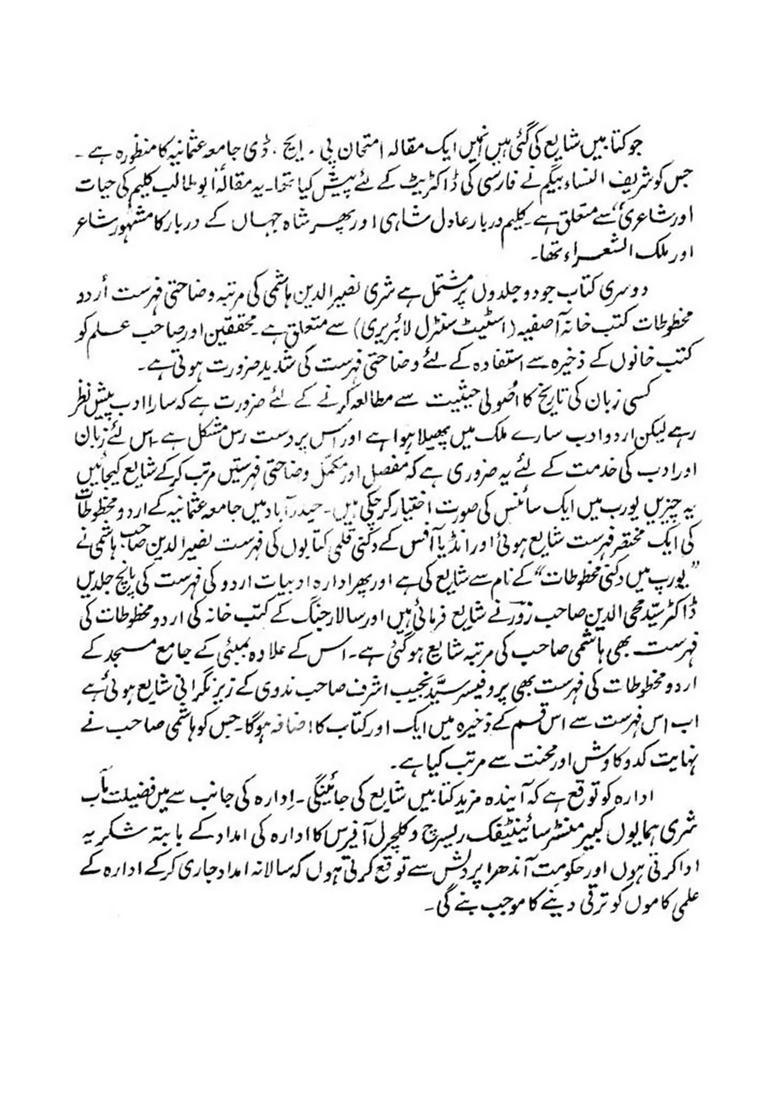 جو کتابیں شایع کی گئی ہیں انہیں ایک مقالہ امتحان پی ۔ ایچ ۔ ڈی جامعہ عثمانیہ کا منظورہ ہے ۔
جس کو شریف النساء بیگم نے فارسی کی ڈاکٹریٹ کے لئے پیش کیا تھا۔ یہ مقالہ ”ابو طالب کلیم کی حیات
اور شاعری“ سے متعلق ہے۔ کلیم دربار عادل شاہی اور پھر شاہ جہاں کے دربار کا مشہور شاعر
اور ملک الشعراء تھا۔
دوسری کتاب جو دو جلدوں پر مشتمل ہے شری نصیر الدین ہاشمی کی مرتبہ وضاحتی فہرست اُردو
مخطوطات کتب خانہ آصفیہ (اسٹیٹ سنٹرل لائبریری) سے متعلق ہے۔ محققین اور صاحب علم کو
کتب خانوں کے ذخیرہ سے استفادہ کے لئے وضاحتی فہرست کی شدید ضرورت ہوتی ہے۔
کسی زبان کی تاریخ کا اُصولی حیثیت سے مطالعہ کرنے کے لئے ضرورت ہے کہ سارا ادب پیش نظر
رہے لیکن اردو ادب سارے ملک میں پھیلا ہوا ہے اور اُس پر دست رس مشکل ہے۔ اس لئے زبان
اور ادب کی خدمت کے لئے یہ ضروری ہے کہ مفصل اور مکمل وضاحتی فہرستیں مرتب کر کے شایع کیجائیں
یہ چیزیں یورپ میں ایک سائنس کی صورت اختیار کر چکی ہیں۔ حیدرآباد میں جامعہ عثمانیہ کے اردو مخطوطات
کی ایک مختصر فہرست شایع ہوئی اور انڈیا آفس کے دکنی قلمی کتابوں کی فہرست نصیر الدین صاحب ہاشمی نے
”یورپ میں دکنی مخطوطات“ کے نام سے شایع کی ہے اور پھر ادارہ ادبیات اردو کی فہرست کی پانچ جلدیں
ڈاکٹر سیّد محی الدین صاحب زورؔ نے شایع فرمائی ہیں اور سالار جنگ کے کتب خانہ کی اردو مخطوطات کی
فہرست بھی ہاشمی صاحب کی مرتبہ شایع ہوگئی ہے۔ اس کے علاوہ بمبئی کے جامع مسجد کے
اردو مخطوطات کی فہرست بھی پروفیسر سیّد نجیب اشرف صاحب ندوی کے زیر نگرانی شایع ہوئی ہے
اب اس فہرست سے اس قسم کے ذخیرہ میں ایک اور کتاب کا اضافہ ہوگا۔ جس کو ہاشمی صاحب نے
نہایت کدوکاوش اور محنت سے مرتب کیا ہے۔
ادارہ کو توقع ہے کہ آیندہ مزید کتابیں شایع کی جائینگی۔ اِدارہ کی جانب سے میں فضیلت مآب
شری ہمایوں کبیر منسٹر سائینٹیفک ریسرچ و کلچرل آفیرس کا ادارہ کی امداد کے بابتہ شکریہ
ادا کرتی ہوں اور حکومت آندھرا پردیش سے توقع کرتی ہوں کہ سالانہ امداد جاری کر کے ادارہ کے
علمی کاموں کو ترقی دینے کا موجب بنے گی۔